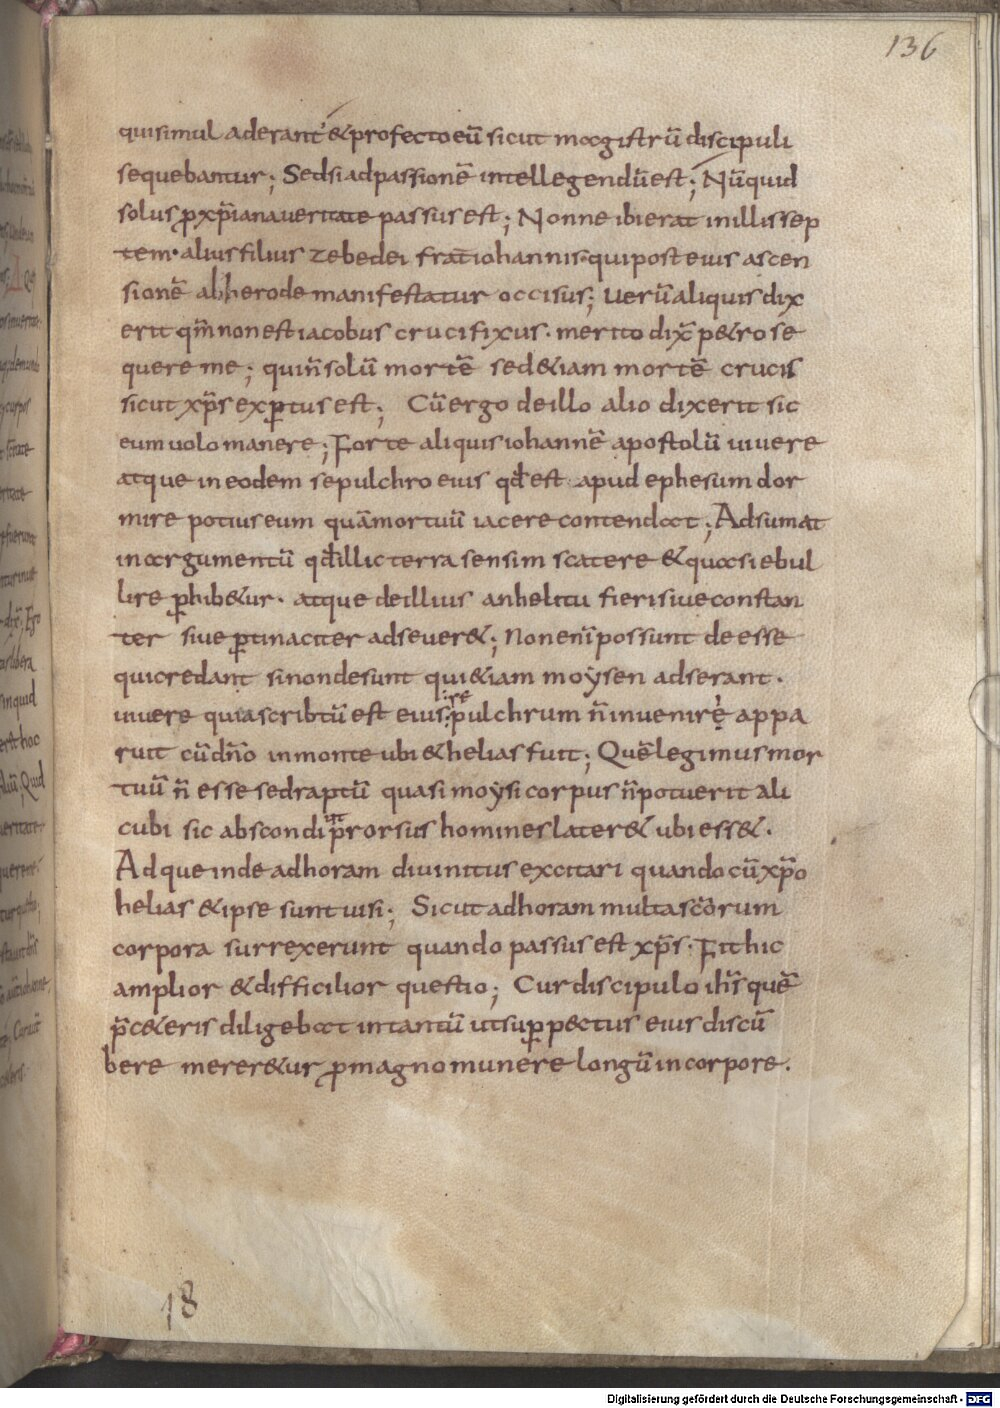 136
quisimul aderant &profectoeū sicut magistrū discipuli
sequebantur; Sedsiadpassionē intellegendūest; Nūquid
solus ꝓxp̄ianaueritate passusest; Nonne ibierat inillissep
tem· aliusfilius zebedei frat̄iohannis·quiposteius ascen
sionē abherode manifestatur occisus; Uerūaliquisdix
erit qm̄nonestiacobus crucifixus· merito dix̄ p&rose
quere me; quin̄solū mortē sed&iam mortē crucis
sicut xp̄sexꝑtusest; Cūergo deillo alio dixerit sic
eumuolomanere; Forte aliquisiohannē apostolū uiuere
atque ineodem sepulchro eius qđest apud ephesum dor
mire potiuseum quāmortuū iacere contendat; Adsumat
inargumentū qđillicterra sensim scatere &quasiebul
lire ꝑhib&ur· atque deillius anhelitu fierisiueconstan
ter siue ꝑtinaciter adseuer&; Nonenīpossunt deesse
quicredant sinondesunt qui&iam moẏsen adserant·
re
uiuere quiascribtūest eius pulchrum n̄inuenirẹ appa
ruit cūdn̄o inmonte ubi&heliasfuit; Quēlegimusmor
tuū n̄ esse sedraptū quasi moẏsi corpus n̄potuerit ali
cubi sic abscondi p̄rorsus homineslater& ubiess&·
Adque inde adhoram diuinitus excitari quando cūxp̄o
helias &ipse sunt uisi; Sicut adhoram multascōrum
corpora surrexerunt quando passusest xp̄s· Fit hic
amplior &difficilior questio; Curdiscipulo ih̄s quē
p̄c&eris diligebat intantū utsuꝑp&ctus eius discū
bere merer&ur ꝓmagnomunere longūincorpore·
18
Digitalisierung gefördert durch die Deutsche Forschungsgemeinschaft - DFG